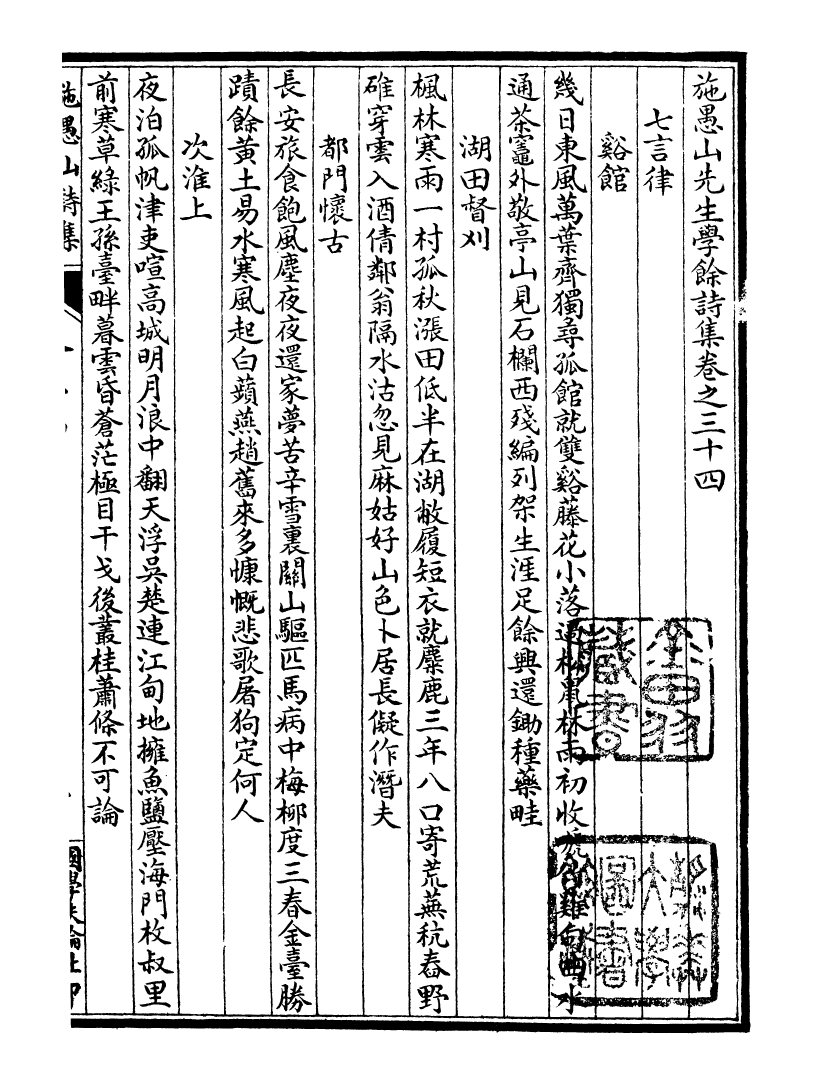 施愚山先生學餘詩集卷之三十四
七言律
谿館
幾日東風萬葉齊獨尋孤館就雙谿藤花小落過松鼠林雨初收水
通茶竈外敬亭山見石欄西殘編列架生涯足餘興還鋤種藥畦
湖田督刈
楓林寒雨一村孤秋漲田低半在湖敝履短衣就麋鹿三年八口寄荒蕪秔舂野
碓穿雲入酒倩鄰翁隔水沽忽見麻姑好山色卜居長儗作潛夫
都門懷古
長安旅食飽風塵夜夜還家夢苦辛雪裏關山驅匹馬病中梅柳度三春金臺勝
蹟餘黃土易水寒風起白蘋燕趙舊來多慷慨悲歌屠狗定何人
次淮上
夜泊孤帆津吏喧高城明月浪中翻天浮吳楚連江甸地擁魚鹽壓海門枚叔里
前寒草綠王孫臺畔暮雲昏蒼茫極目干戈後叢桂蕭條不可論
施愚山詩集
國學扶輪社印